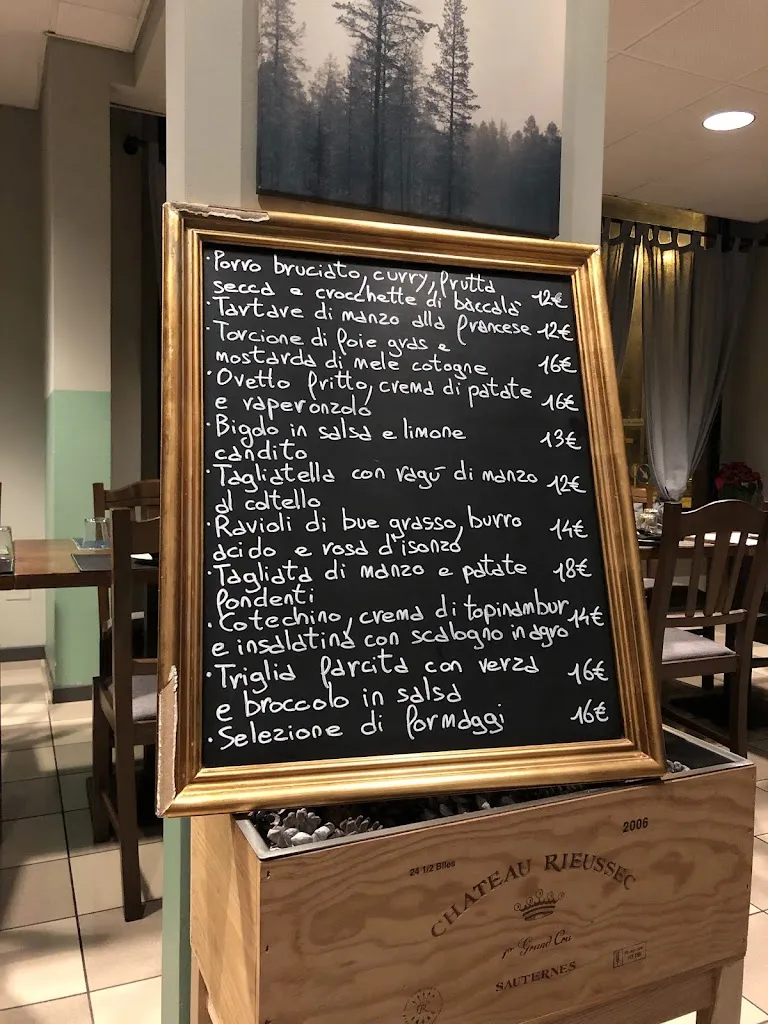 ·Porro bruciato, curry, frutta
secca e crocchette di baccalà 12€
·Tartare di manzo alla francese 12€
·Torcione di foie gras e
mostarda di mele cotogne 16€
·Ovetto fritto, crema di patate
e raperonzolo 16€
·Bigolo in salsa e limone
candito 13€
·Tagliatella con ragù di manzo
al coltello 12€
·Ravioli di bue grasso, burro
acido e rosa d'isonzo 14€
·Tagliata di manzo e patate
fondenti 18€
·Cotechino, crema di topinambur
e insalatina con scalogno in agro 14€
·Triglia farcita con verza
e broccolo in salsa 16€
·Selezione di formaggi 16€
2006
24 1/2 Blles
CHATEAU RIEUSSEC
1er Grand Cru
SAUTERNES